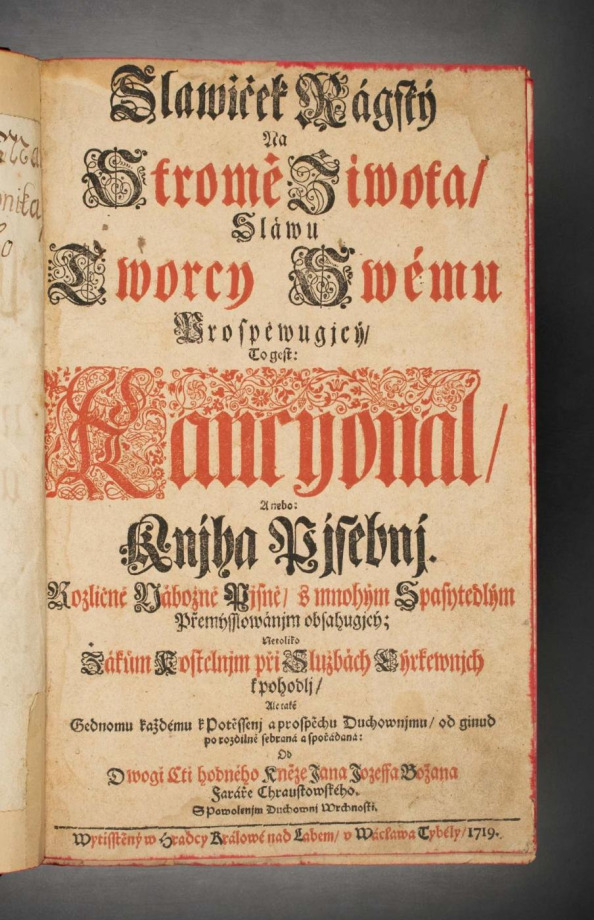 Slawiček Rágský
Na
Stromě Života/
Sláwu
Tworcy Swému
Prospěwugjcý/
To gest:
Kancyonal/
Anebo:
Knjha Pjsebnj.
Rozličné Nábožné Pjsně/ s mnohým Spasytedlým
Přemysslowánjm obsahugjcý;
Netoliko
Žákům Kostelnjm při Službách Cýrkewnjch
k pohodlj/
Ale také
Gednomu každému k Potěssenj a prospěchu Duchownjmu/ od ginud
po rozdilně sebraná a spořádaná:
Od
Dwogj Cti hodného Kněze Jana Jozeffa Božana
Faráře Chraustowského.
S Powolenjm Duchownj Wrchnosti.
Wytisstěný w Hradcy Králowé nad Labem/ v Wácława Tybély/ 1719.